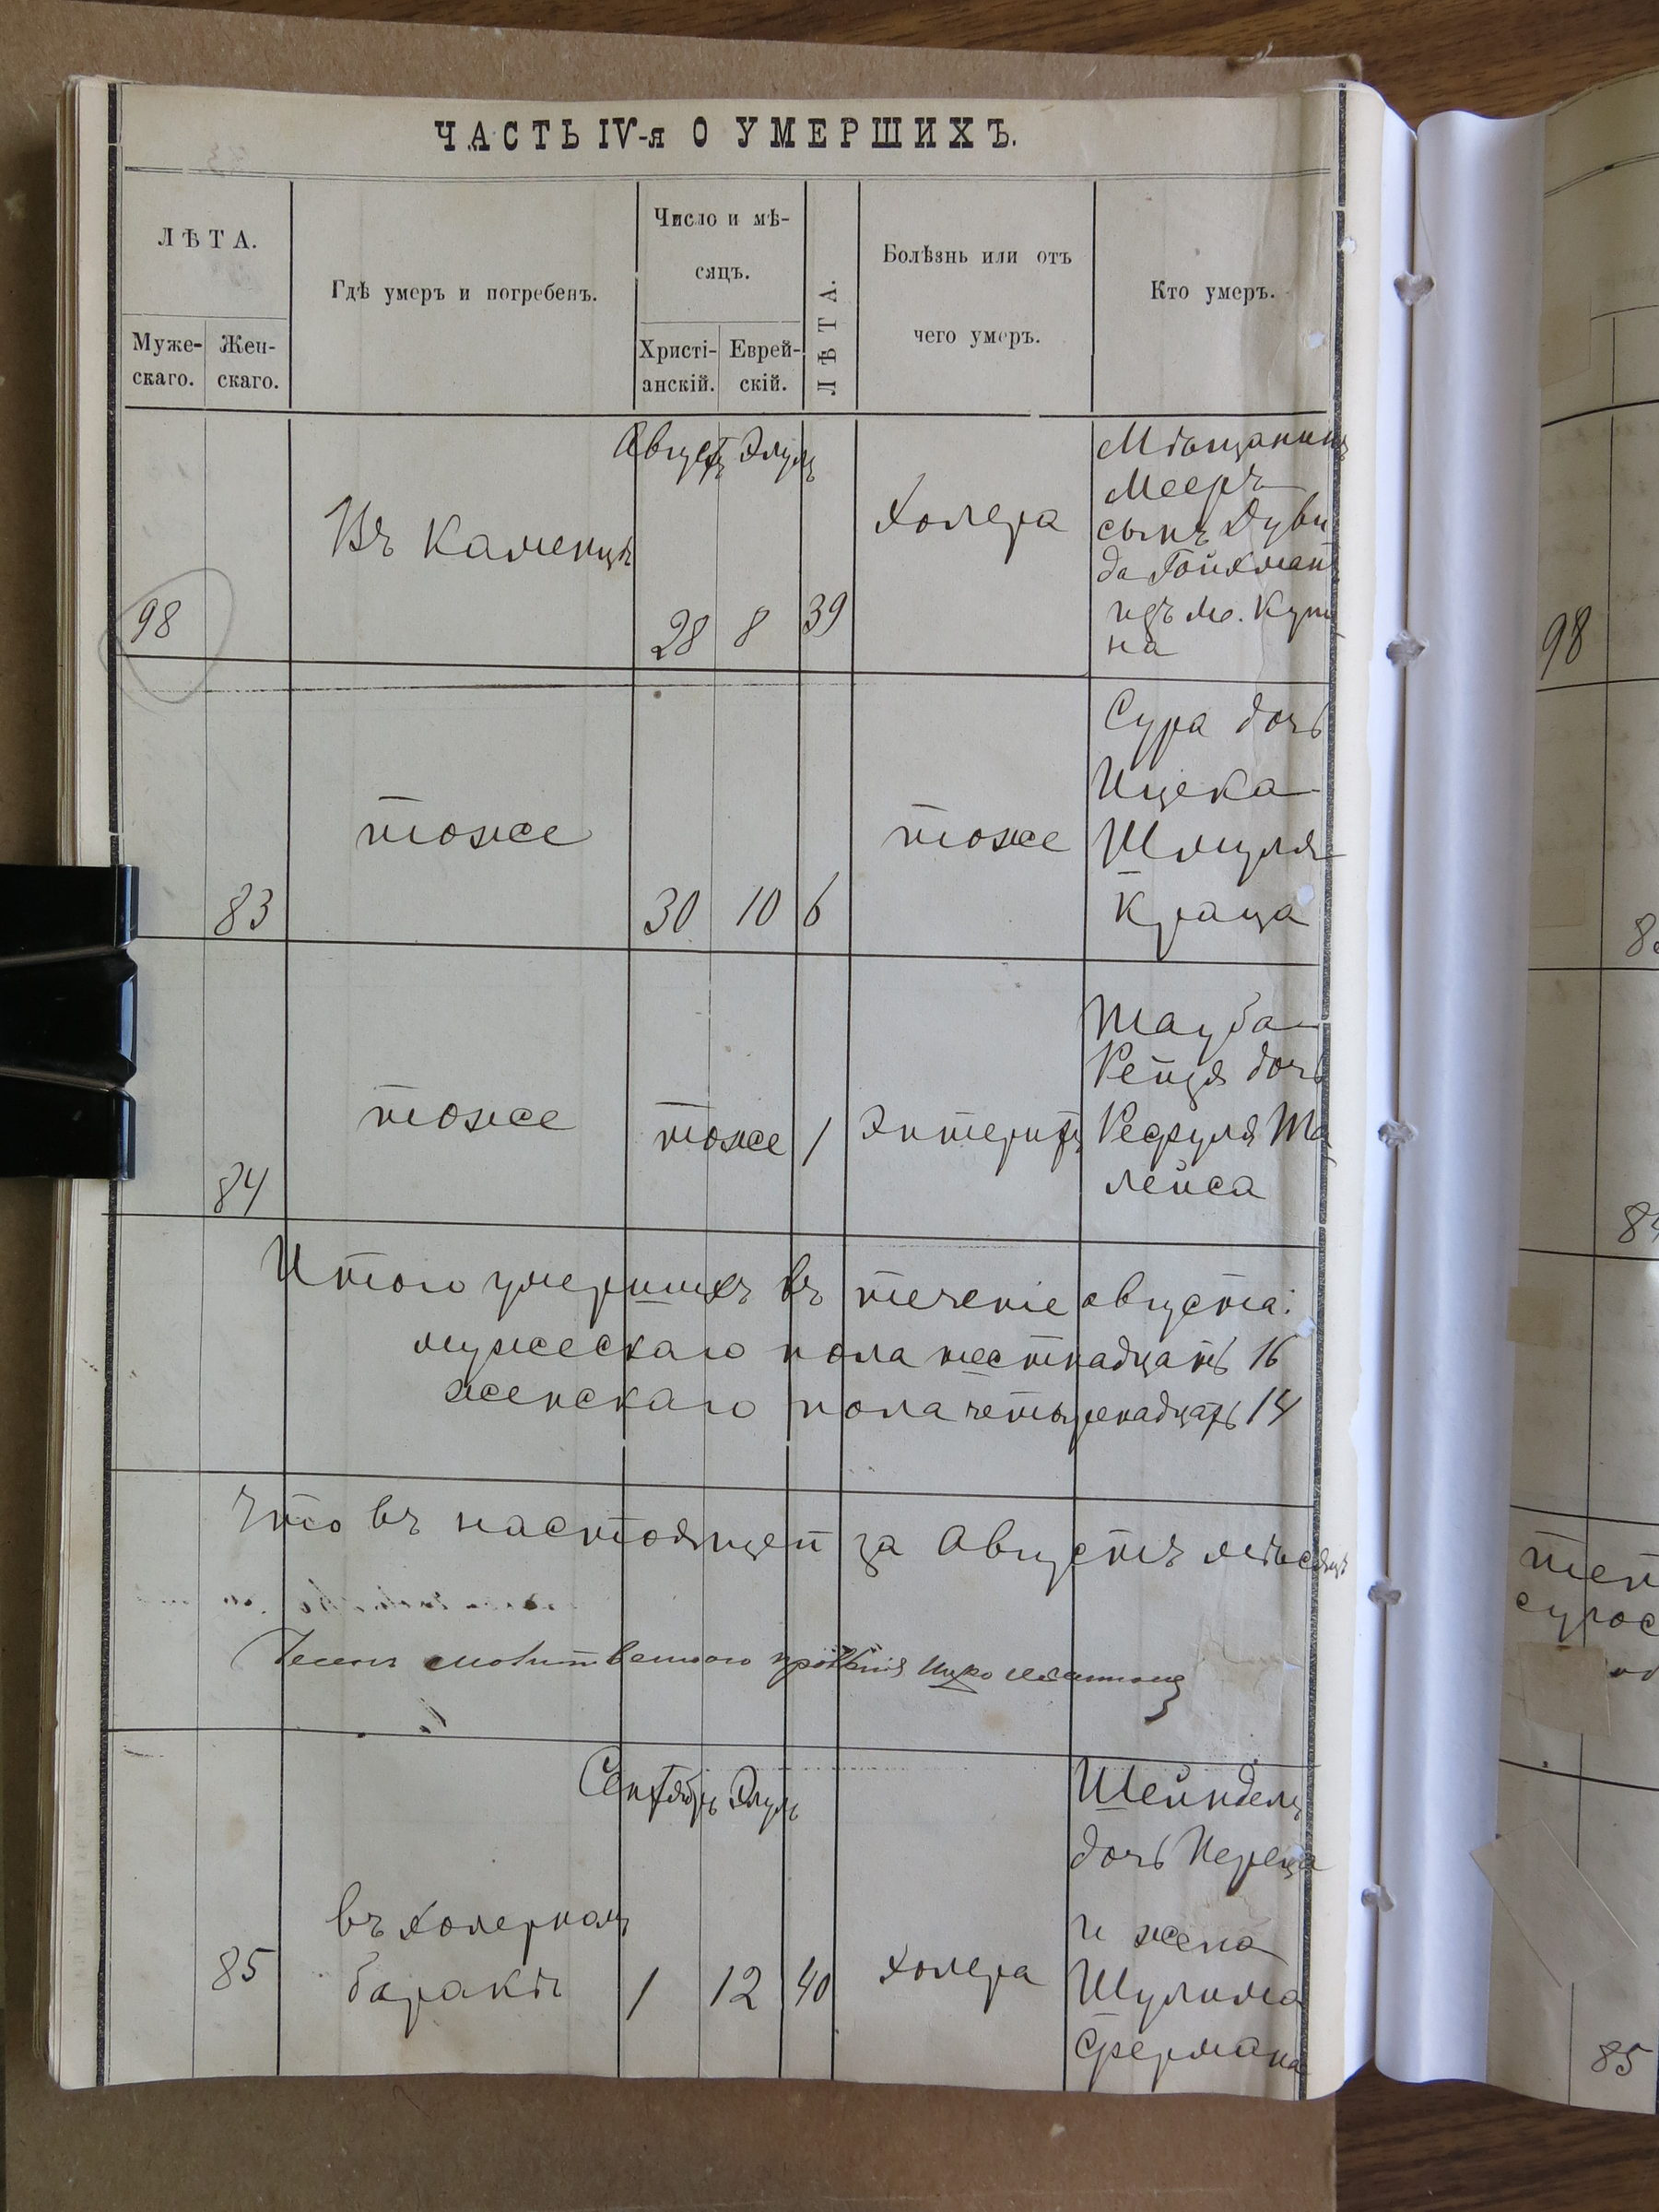 ЧАСТЬ IV-я О УМЕРШИХЪ.
ЛѢТА.
Муже-
скаго.
Жен-
скаго.
Гдѣ умеръ и погребенъ.
Число и мѣ-
сяцъ.
Христі-
анскій.
Еврей-
скій.
ЛѢТА.
Болѣзнь или отъ
чего умеръ.
Кто умеръ.
98
Въ Каменцѣ
Августъ Элулъ
28 8 39
Холера
Мѣщанинъ
Мееръ
сынъ Дуви
да Гойхманъ
изъ м. Купи
на
98
83
тоже
30 10 6
тоже
Сура дочь
Ицека
Шмуля
Краца
84
тоже
тоже 1
Энтеритъ
Тауба
Рейзя дочь
лейса
Итого умершихъ въ теченіе августа:
мужескаго пола шестнадцать 16
женскаго пола четырнадцать 14
Что въ настоящей за Августъ мѣсяцъ
Членъ молитвенного правленія Ицко
85
въ холерномъ
баракѣ
Сентябрь Элулъ
1 12 40
холера
Шейндель
дочь Переца
и жена
Шулима
Фермана
85